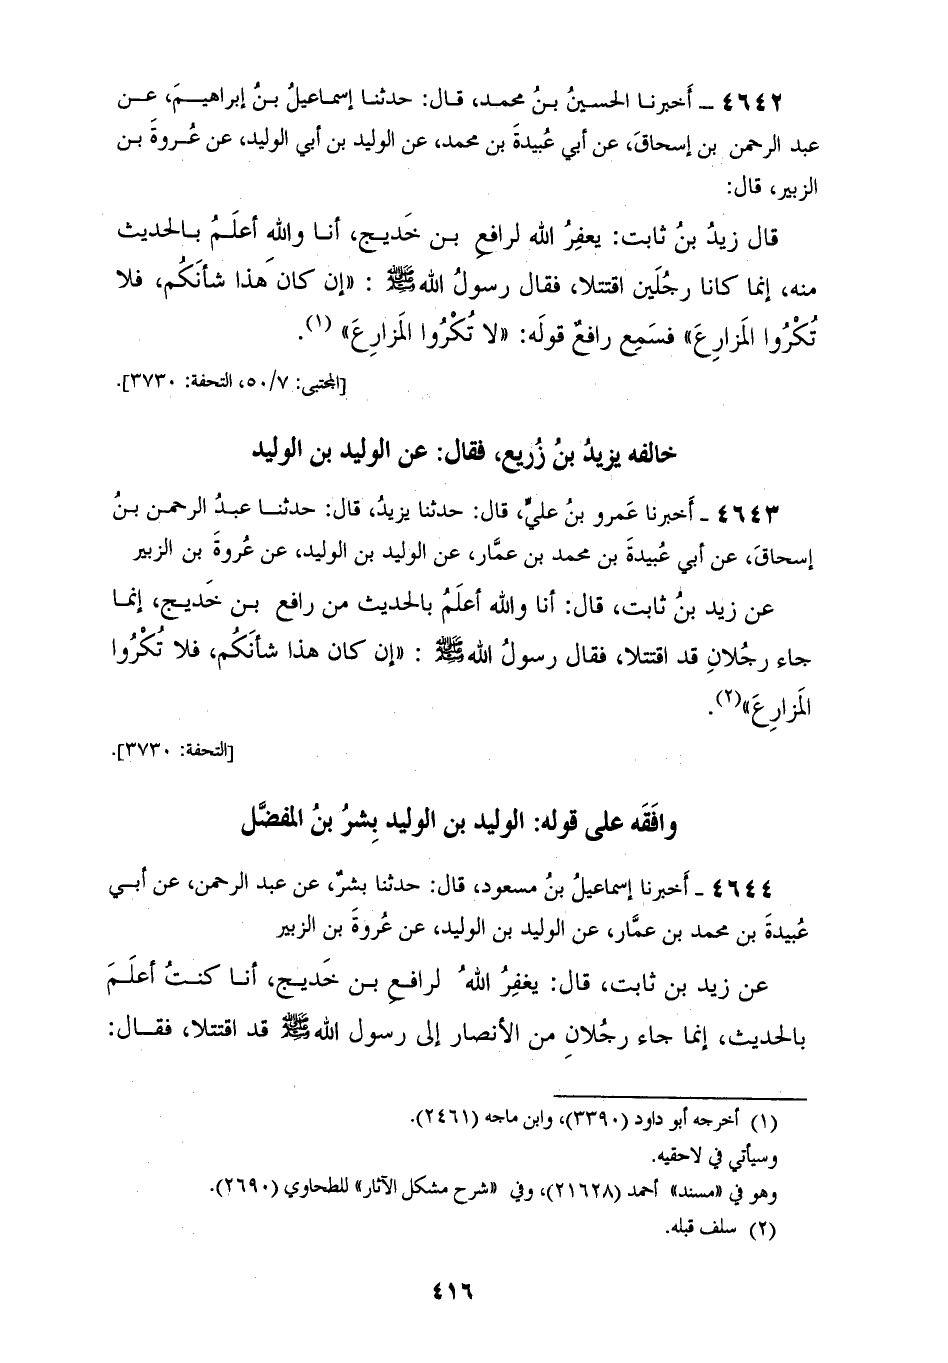 ٤٦٤٢ ـ أَخبرنا الحسينُ بنُ محمد، قال: حدثنا إسماعيلُ بنُ إبراهيمَ، عن
عبد الرحمن بن إسحاقَ، عن أبي عُبيدةَ بن محمد، عن الوليد بن أبي الوليد، عن عُروةَ بن
الزبير، قال:
قال زيدُ بنُ ثابت: يغفِرُ الله لرافعِ بن خَديج، أنا والله أعلَمُ بالحديث
منه، إنما كانا رجُلَين اقتتلا، فقال رسولُ الله ﷺ : «إن كان هَذا شأنَكُم، فلا
تُكْرُوا المَزارِعَ» فسَمِع رافعٌ قولَه: «لا تُكْرُوا المَزارِعَ» (١).
[المجتبى: ٥٠/٧، التحفة: ٣٧٣٠].
خالفه يزيدُ بنُ زُريع، فقال: عن الوليد بن الوليد
٤٦٤٣ ـ أَخبرنا عَمرو بنُ عليٍّ، قال: حدثنا يزيدُ، قال: حدثنا عبدُ الرحمن بنُ
إسحاقَ، عن أبي عُبيدةَ بن محمد بن عمَّار، عن الوليد بن الوليد، عن عُروةَ بن الزبير
عن زيد بنُ ثابت، قال: أنا والله أعلَمُ بالحديث من رافع بن خَديج، إنما
جاء رجُلانِ قد اقتتلا، فقال رسولُ الله ﷺ : «إن كان هذا شأنَكُم، فلا تُكْرُوا
المَزارِعَ»(٢).
[التحفة: ٣٧٣٠].
وافَقَه على قوله: الوليد بن الوليد بِشرُ بنُ المُفضَّل
٤٦٤٤ ـ أَخبرنا إسماعيلُ بنُ مسعود، قال: حدثنا بشرٌ، عن عبد الرحمن، عن أبي
عُبيدةَ بن محمد بن عمَّار، عن الوليد بن الوليد، عن عُروةَ بن الزبير
عن زيد بن ثابت، قال: يغفِرُ اللهُ لرافعِ بن خَديج، أنا كنتُ أعلَمَ
بالحديث، إنما جاء رجُلانِ من الأنصار إلى رسول الله ﷺ قد اقتتلا، فقال:
(١) أخرجه أبو داود (٣٣٩٠)، وابن ماجه (٢٤٦١).
وسيأتي في لاحقيه.
وهو في «مسند» أحمد (٢١٦٢٨)، وفي «شرح مشكل الآثار» للطحاوي (٢٦٩٠).
(٢) سلف قبله.
٤١٦